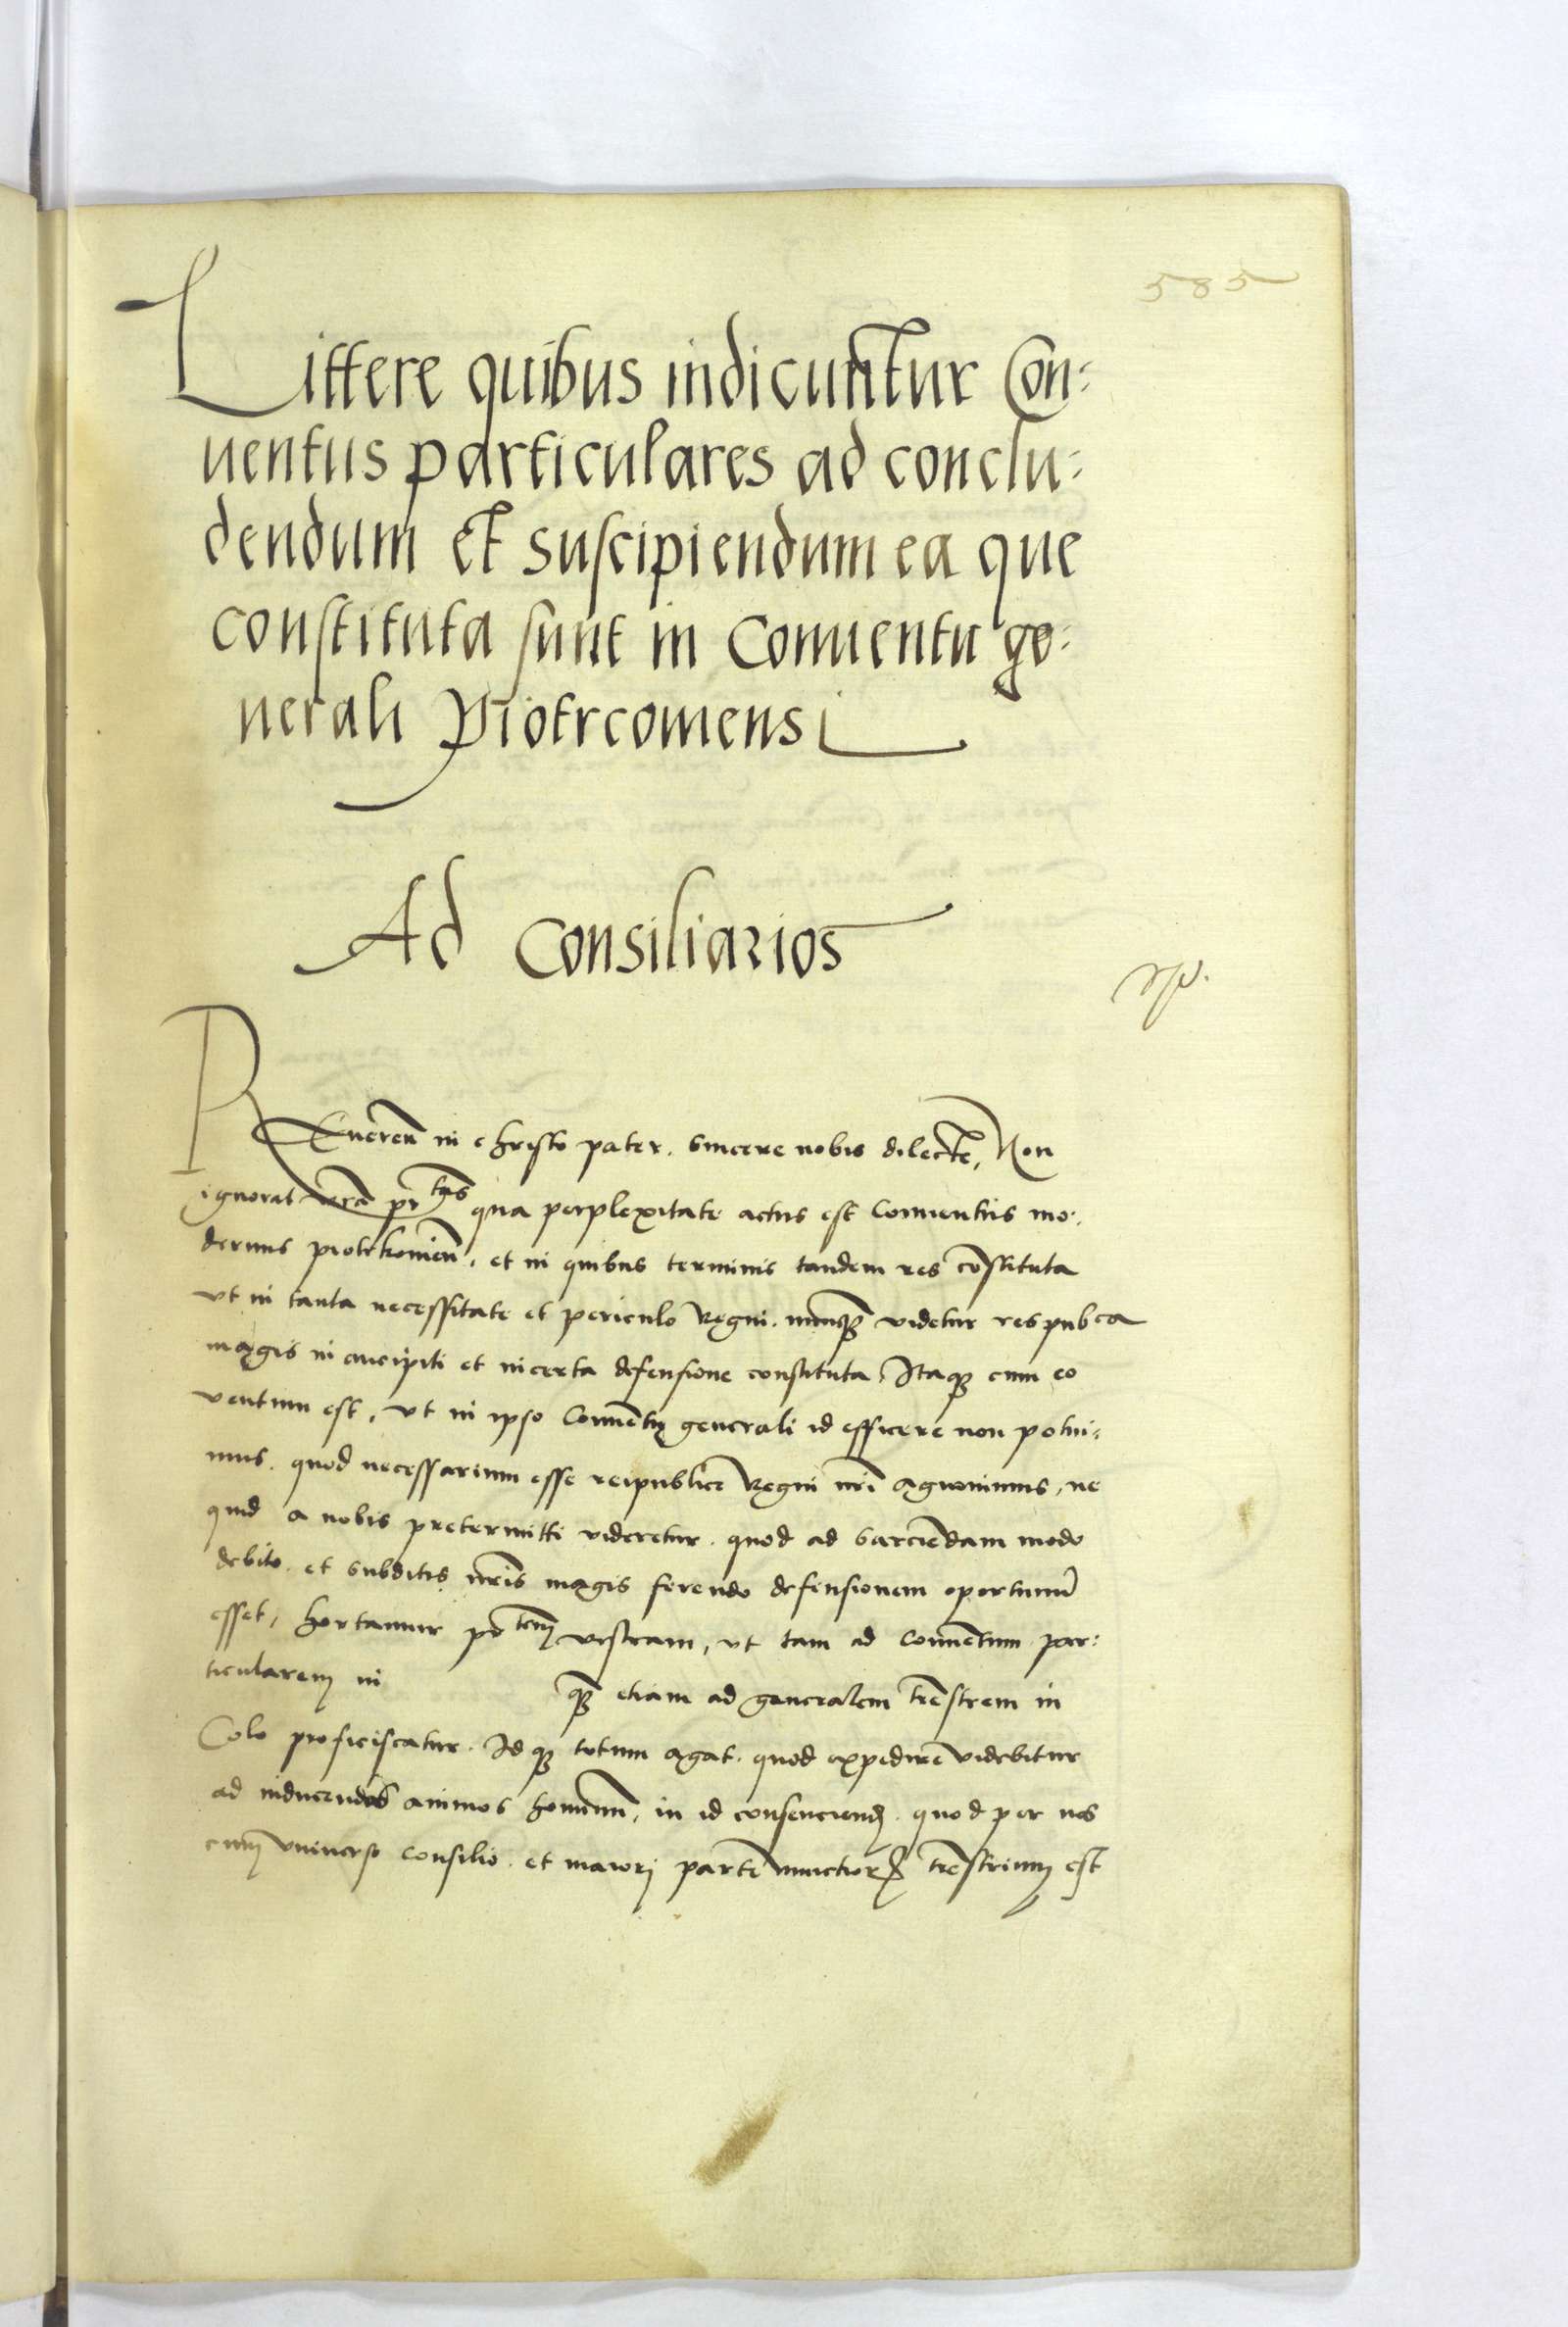 585
Littere quibus indicuntur Con:
uentus particulares ad conclu:
dendum et suscipiendum ea que
constituta sunt in Conuentu ge:
nerali Piotrcouiensi
Ad Consiliarios
REueren in christo pater. sincere nobis dilecte, Non
ignorat vra prtas qua perplexitate actus est Conuentus mo:
dernus piotrkouien, et in quibus terminis tandem res constituta
vt in tanta necessitate et periculo Regni. nunquam videtur respubca
magis in ancipiti et incerta defensione constituta. Itaque cum eo
ventum est, vt in ipso Conuentu generali id efficere non potui:
mus. quod necessarium esse reipublice Regni nri agnouimus, ne
quid a nobis pretermitti videretur. quod ad sarciendam modo
debito. et subditis nris magis ferendo defensionem oportunum
esset, hortamur ptem vestram, vt tam ad Conuentum par:
ticularem in quam etiam ad generalem trestrem in
Colo proficiscatur. Idque totum agat. quod expedire videbitur
ad inducendos animos hominum, in id consenciend. quod per nos
cum vniuerso consilio. et maiori parte nunctiorum trestrium est